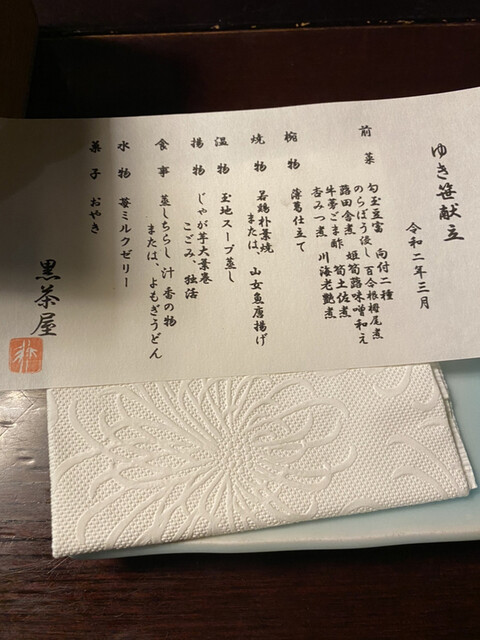 ゆき笹献立
令和二年三月
前菜 勾玉豆富 向付二種
のらぼう浸し 百合根栂尾煮
蕗田舎煮 姫筍蕗味噌和え
牛蒡ごま酢 筍土佐煮
杏みつ煮 川海老艶煮
椀物 薄葛仕立て
焼物 若鶏朴葉焼
または、山女魚唐揚げ
温物 玉地スープ蒸し
揚物 じゃが芋大葉巻
こごみ、独活
食事 蒸しちらし、汁 香の物
または、よもぎうどん
水物 苺ミルクゼリー
菓子 おやき
黒茶屋